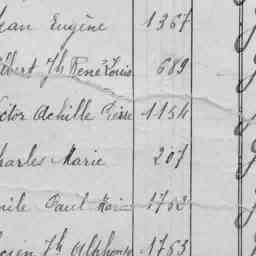 Jean Eugène 1367
Albert Jh René Louis 689
Victor Achille Pierre 1154
Charles Marie 207
Emile Paul 1752
Lucien Jh Alphonse 1753